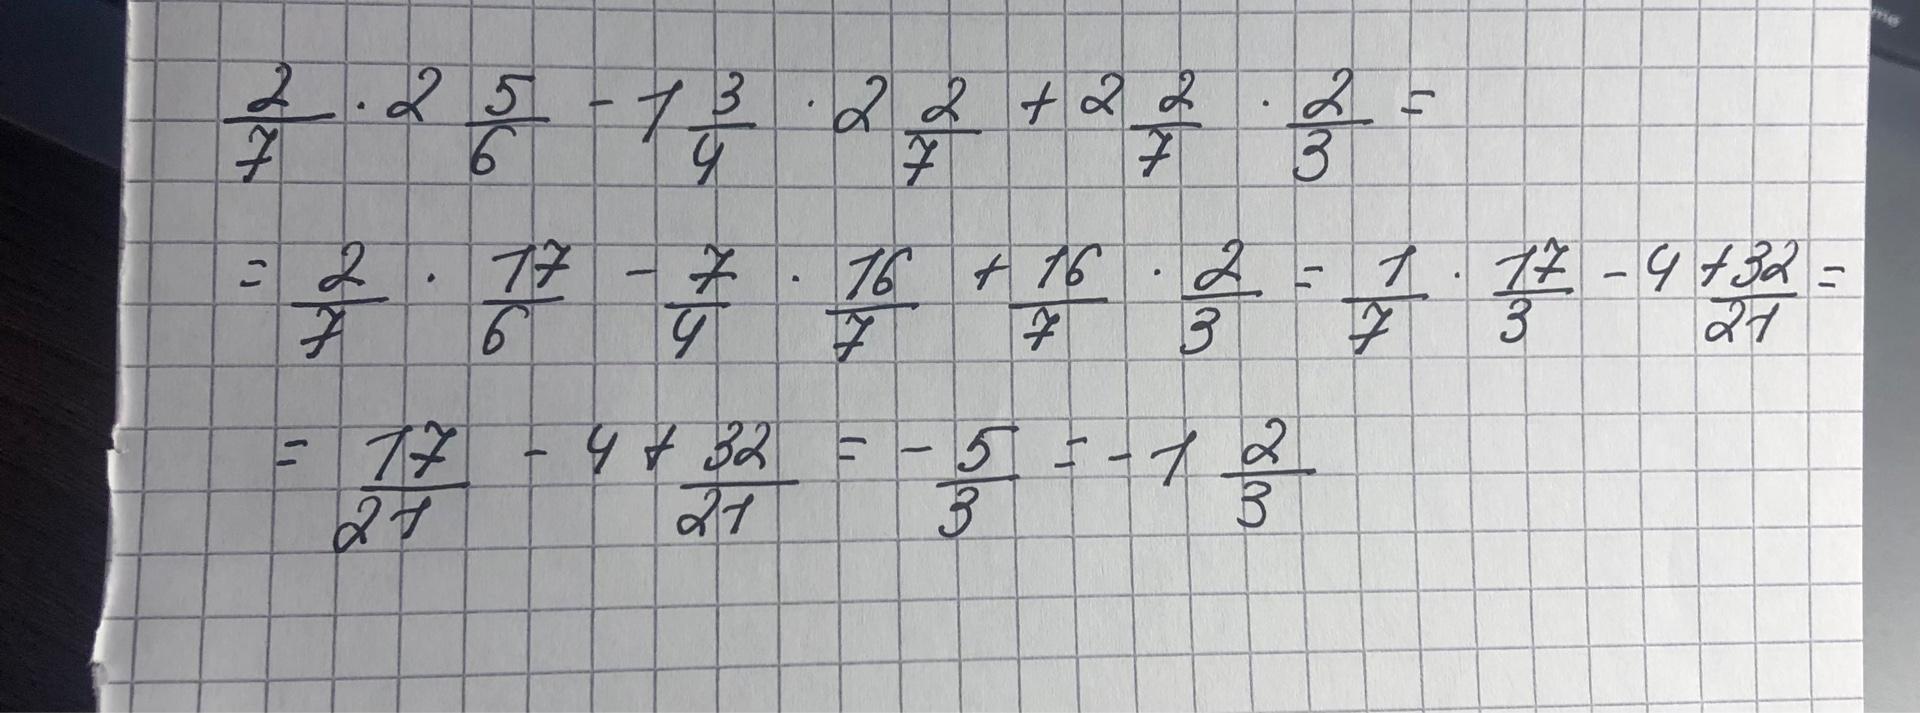 2/7 · 2 5/6 - 1 3/4 · 2 2/7 + 2 2/7 · 2/3 =
= 2/7 · 17/6 - 7/4 · 16/7 + 16/7 · 2/3 = 1/7 · 17/3 - 4 + 32/21 =
= 17/21 - 4 + 32/21 = - 5/3 = - 1 2/3